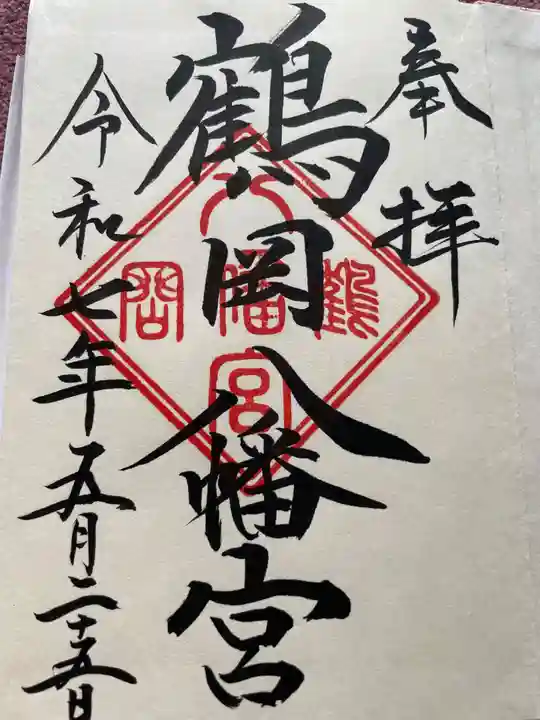 奉拝
鶴岡八幡宮
鶴岡八幡宮
令和七年五月二十五日